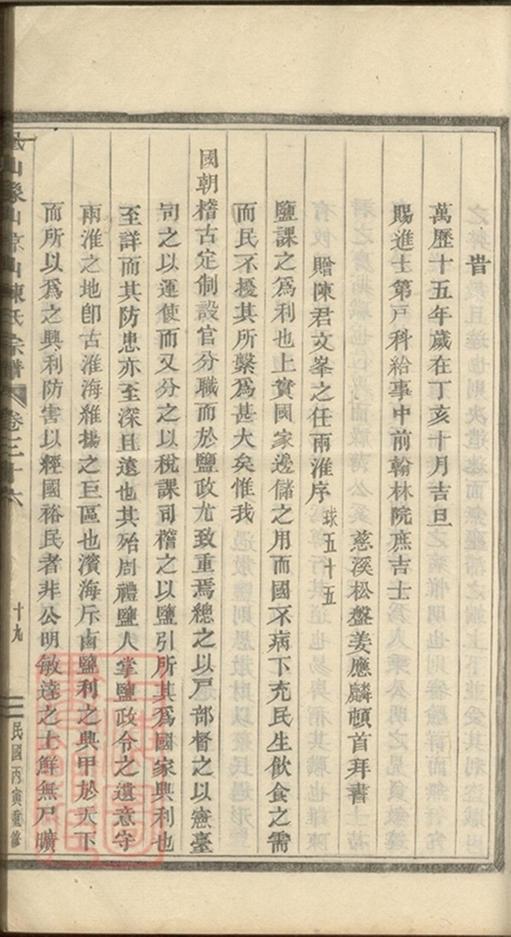 昔
萬歷十五年歲在丁亥十月吉旦
賜進士第戸科給事中前翰林院庶吉士
慈溪松盤姜應麟頓首拜書
贈陳君文峯之任兩淮序 球五十五
鹽課之爲利也上實國家邊儲之用而國不病下充民生飲食之需
而民不擾其所繫爲甚大矣惟我
國朝稽古定制設官分職而於鹽政尤致重焉總之以戸部督之以憲臺
司之以運使而又分之以稅課司稽之以鹽引所其爲國家興利也
至詳而其防患亦至深且遠也其殆周禮鹽人掌鹽政令之遺意守
兩淮之地卽古淮海維揚之巨區也濱海斥鹵鹽利之興甲於天下
而所以爲之興利防害以經國裕民者非公明敏達之士鮮無尸曠
山象山京山陳氏宗譜 卷三十六 十九 民國丙寅重修